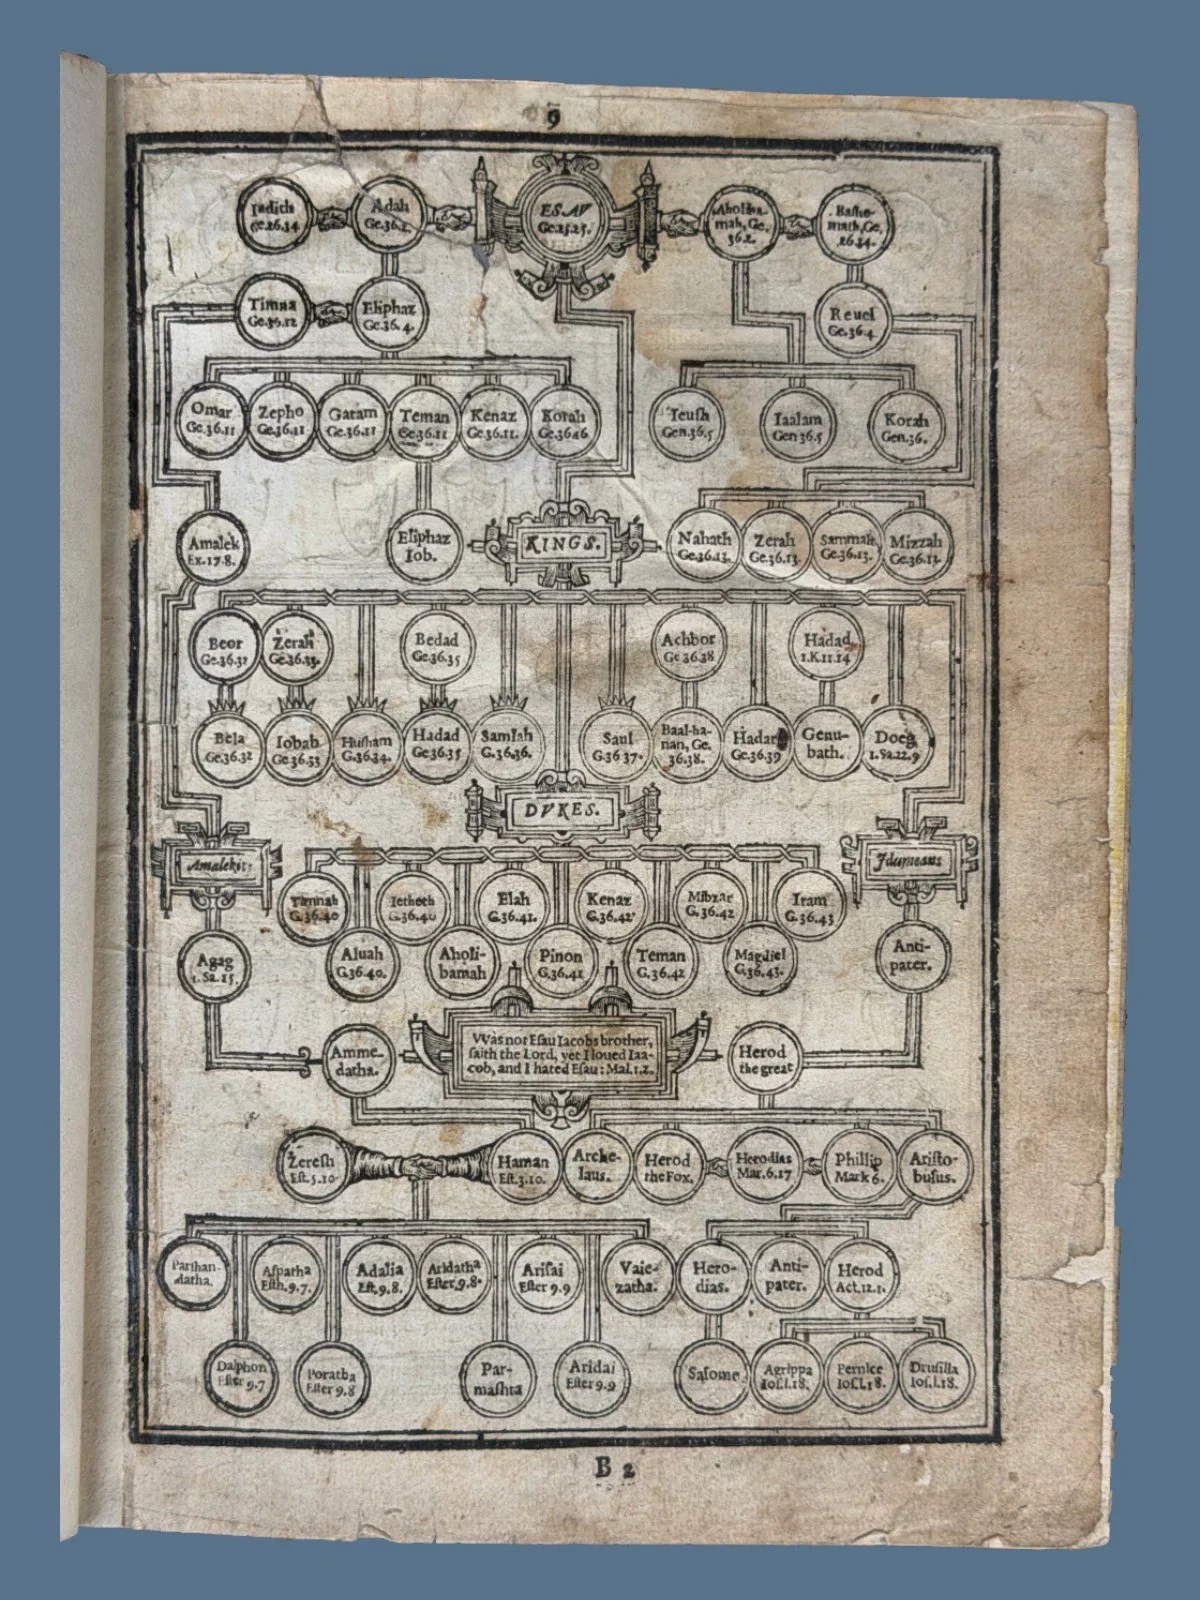 9
Iudith
Ge.26.34
Adah
Ge.36.2.
ESAV
Ge.25.25.
Aholiba-
mah, Ge.
36 2.
Bashe-
math, Ge.
26.34.
Timna
Ge.36.12
Eliphaz
Ge.36.4.
Reuel
Ge.36.4
Omar
Ge.36.11
Zepho
Ge.36.11
Gatam
Ge.36.11
Teman
Ge.36.11
Kenaz
Ge.36.11.
Korah
Ge.36.16
Ieush
Gen.36.5
Iaalam
Gen 36.5
Korah
Gen.36.
Amalek
Ex.17.8.
Eliphaz
Iob.
KINGS.
Nahath
Ge.36.13.
Zerah
Ge.36.13.
Sammah
Ge.36.13.
Mizzah
Ge.36.13.
Beor
Ge.36.32
Zerah
Ge.36.33.
Bedad
Ge.36.35
Achbor
Ge 36.38
Hadad
1.K.11.14
Bela
Ge.36.32
Iobab
Ge.36.33
Husham
G.36.34.
Hadad
Ge.36.35
Samlah
G.36.36.
Saul
G.36 37.
Baal-ha-
nan, Ge.
36.38.
Hadar
Ge.36.39
Genu-
bath.
Doeg
1.Sa.22.9
DVKES.
Amalekit:
Idumeans
Timnah
G.36.40
Ietheth
G.36.40
Elah
G.36.41.
Kenaz
G.36.42
Mibzar
G.36.42
Iram
G.36.43
Aluah
G.36.40.
Aholi-
bamah
Pinon
G.36.41
Teman
G.36.42
Magdiel
G.36.43.
Agag
1.Sa.15.
Anti-
pater.
Amme-
datha.
Was not Esau Iacobs brother,
saith the Lord, yet I loued Iaa-
cob, and I hated Esau: Mal.1.2.
Herod
the great
Zeresh
Est.5.10.
Haman
Est.3.10.
Arche-
laus.
Herod
the Fox.
Herodias
Mar.6.17
Phillip
Mark 6.
Aristo-
bulus.
Parshan-
datha.
Aspatha
Esth.9.7.
Adalia
Est.9.8.
Aridatha
Ester.9.8.
Arisai
Ester 9.9
Vaie-
zatha.
Hero-
dias.
Anti-
pater.
Herod
Act.12.1.
Dalphon
Ester 9.7
Poratha
Ester 9.8
Par-
mashta
Aridai
Ester 9.9
Salome.
Agrippa
Ios.l.18.
Bernice
Ios.l.18.
Drusilla
Ios.l.18.
B 2